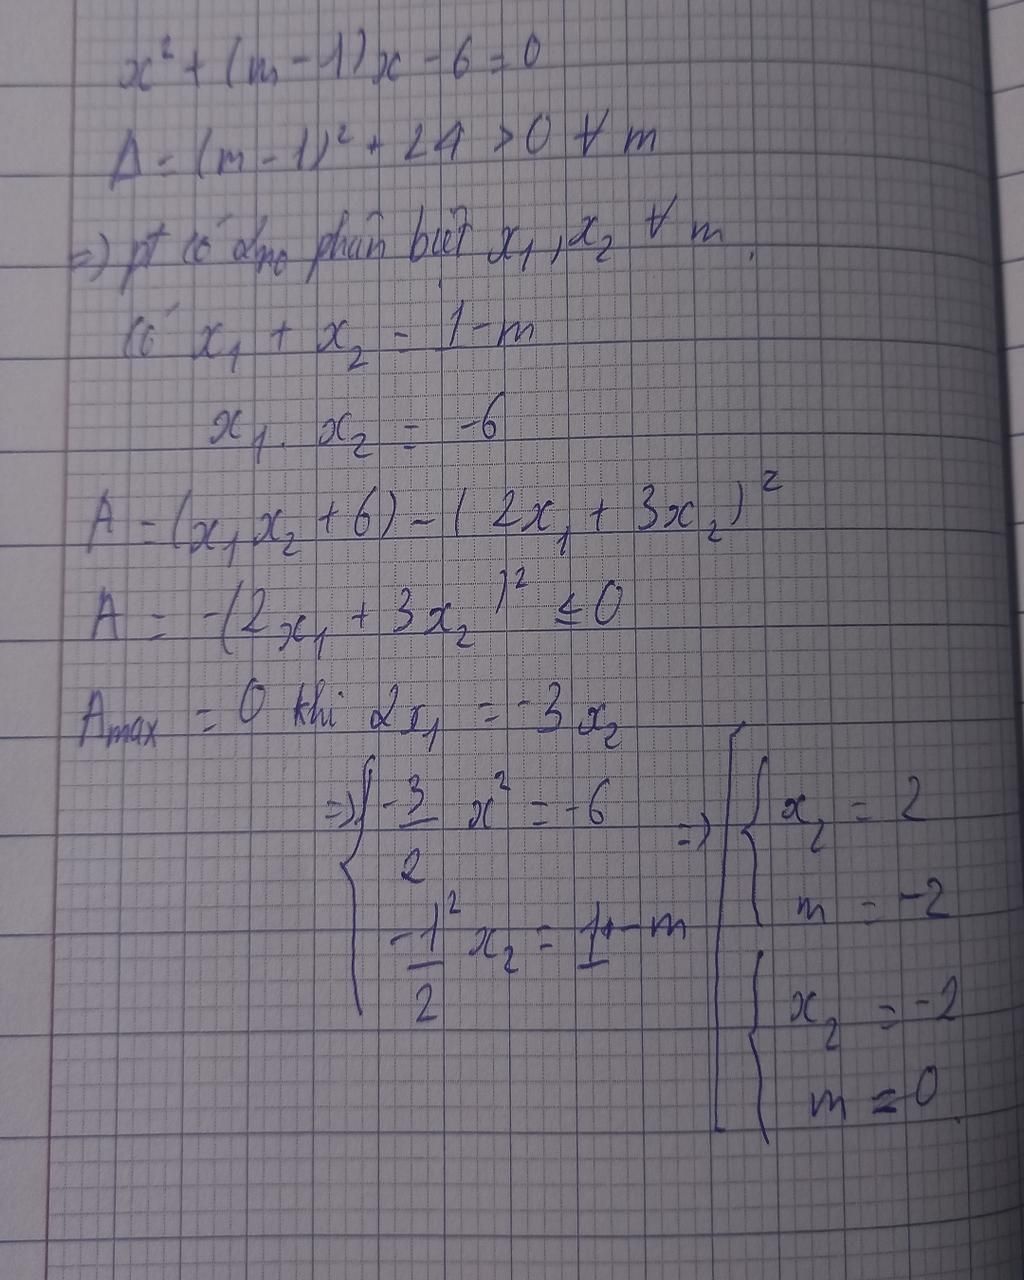 x² + (m - 1)x - 6 = 0
Δ = (m - 1)² + 24 > 0 ∀ m
=> pt có 2no phân biệt x₁, x₂ ∀ m
Có x₁ + x₂ = 1 - m
x₁. x₂ = -6
A = (x₁x₂ + 6) - (2x₁ + 3x₂)²
A = -(2x₁ + 3x₂)² ≤ 0
Amax = 0 khi 2x₁ = -3x₂
=> { -3/2 x² = -6 => [ { x₂ = 2
-1/2 ² x₂ = 1 - m m = -2
{ x₂ = -2
m = 0